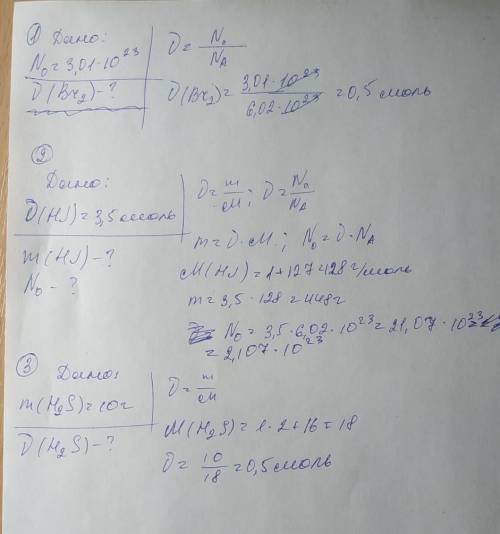 ① Дано:
N₀ = 3,01 · 10²³
ν(Br₂) - ?
ν = N₀ / N_A
ν(Br₂) = 3,01 · 10²³ / 6,02 · 10²³ = 0,5 моль
②
Дано:
ν(HJ) = 3,5 моль
m(HJ) - ?
N₀ - ?
ν = m / M ; ν = N₀ / N_A
m = ν · M ; N₀ = ν · N_A
M(HJ) = 1 + 127 = 128 г/моль
m = 3,5 · 128 = 448 г
N₀ = 3,5 · 6,02 · 10²³ = 21,07 · 10²³
= 2,107 · 10²³
③ Дано:
m(H₂S) = 10 г
ν(H₂S) - ?
ν = m / M
M(H₂S) = 1 · 2 + 16 = 18
ν = 10 / 18 = 0,5 моль